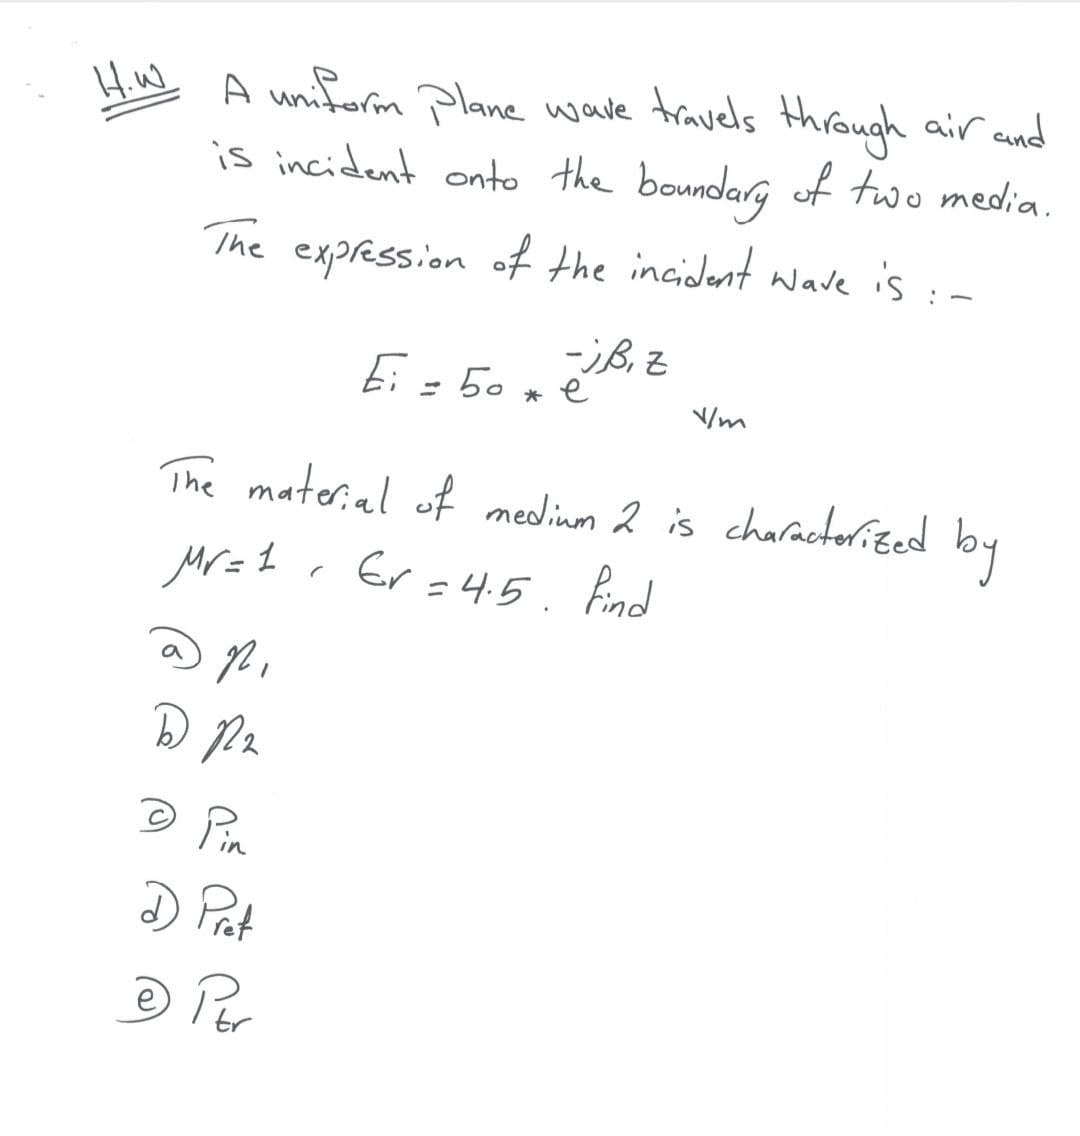 H.W A uniform plane wave travels through air and
is incident onto the boundary of two media.
The expression of the incident wave is :-
Ei = 50 * e^-jβ1 z V/m
The material of medium 2 is characterized by
μr = 1 , εr = 4.5 . find
a) η1
b) η2
c) Pin
d) Pref
e) Ptr